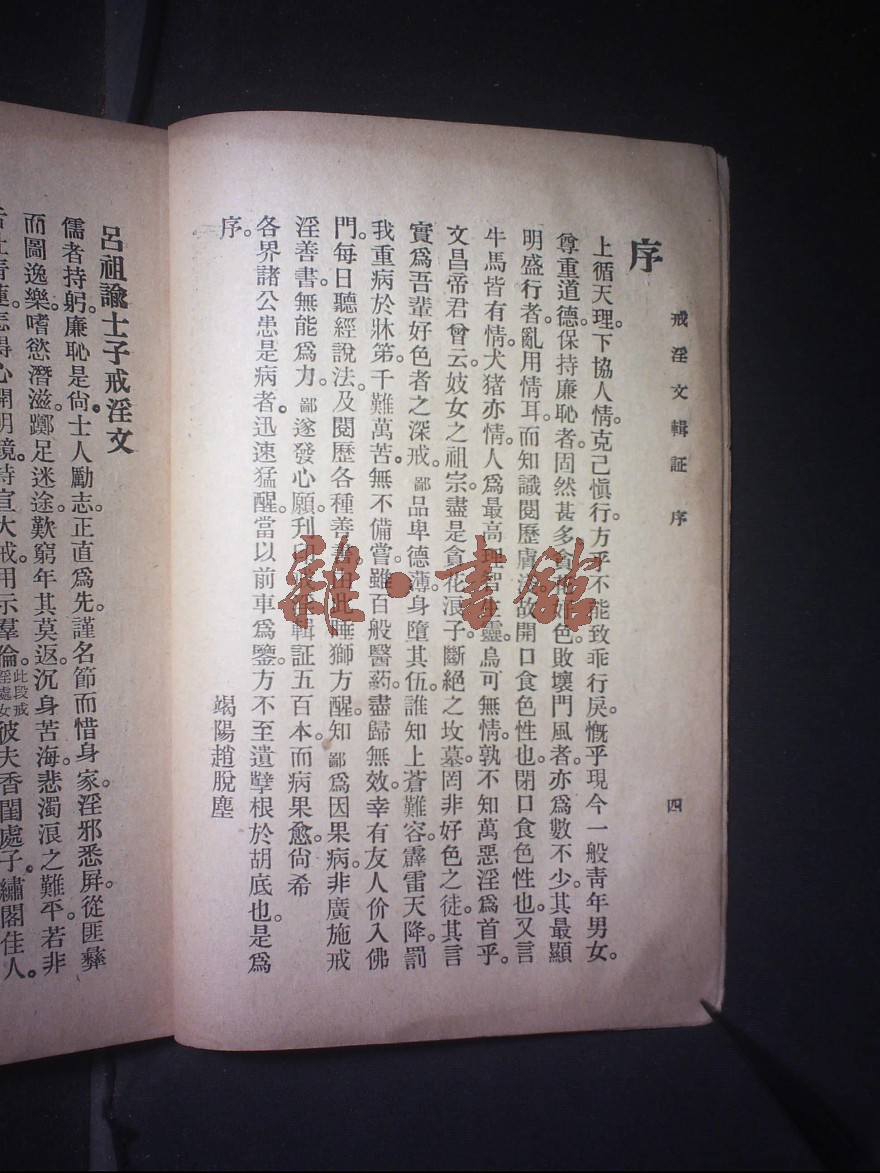 戒淫文輯証 序 四
序
上循天理。下協人情。克己愼行。方乎不能致乖行戾。慨乎現今一般靑年男女。
尊重道德。保持廉恥者。固然甚多。貪花好色。敗壞門風者。亦爲數不少。其最顯
明盛行者。亂用情耳。而知識閱歷膚淺。故開口食色性也。閉口食色性也。又言
牛馬皆有情。犬猪亦情。人爲最高理智生靈。烏可無情。孰不知萬惡淫爲首乎。
文昌帝君曾云。妓女之祖宗。盡是貪花浪子。斷絕之坟墓。罔非好色之徒。其言
實爲吾輩好色者之深戒。鄙品卑德薄。身墮其伍。誰知上蒼難容。霹雷天降。罰
我重病於牀第。千難萬苦。無不備嘗。雖百般醫葯。盡歸無效。幸有友人价入佛
門。每日聽經說法。及閱歷各種善書。由此睡獅方醒。知鄙爲因果病。非廣施戒
淫善書。無能爲力。鄙遂發心願。刊印戒淫輯証五百本。而病果愈。尙希
各界諸公。患是病者。迅速猛醒。當以前車爲鑒。方不至遺孽根於胡底也。是爲
序。
竭陽趙脫塵
呂祖諭士子戒淫文
儒者持躬。廉恥是尙。士人勵志。正直爲先。謹名節而惜身家。淫邪悉屏。從匪彝
而圖逸樂。嗜慾潛滋。躑足迷途。歎窮年其莫返。沉身苦海。悲濁浪之難平。若非
心開明鏡。特宣大戒。用示羣倫。此段戒淫處女彼夫香閨處子。繡閣佳人。